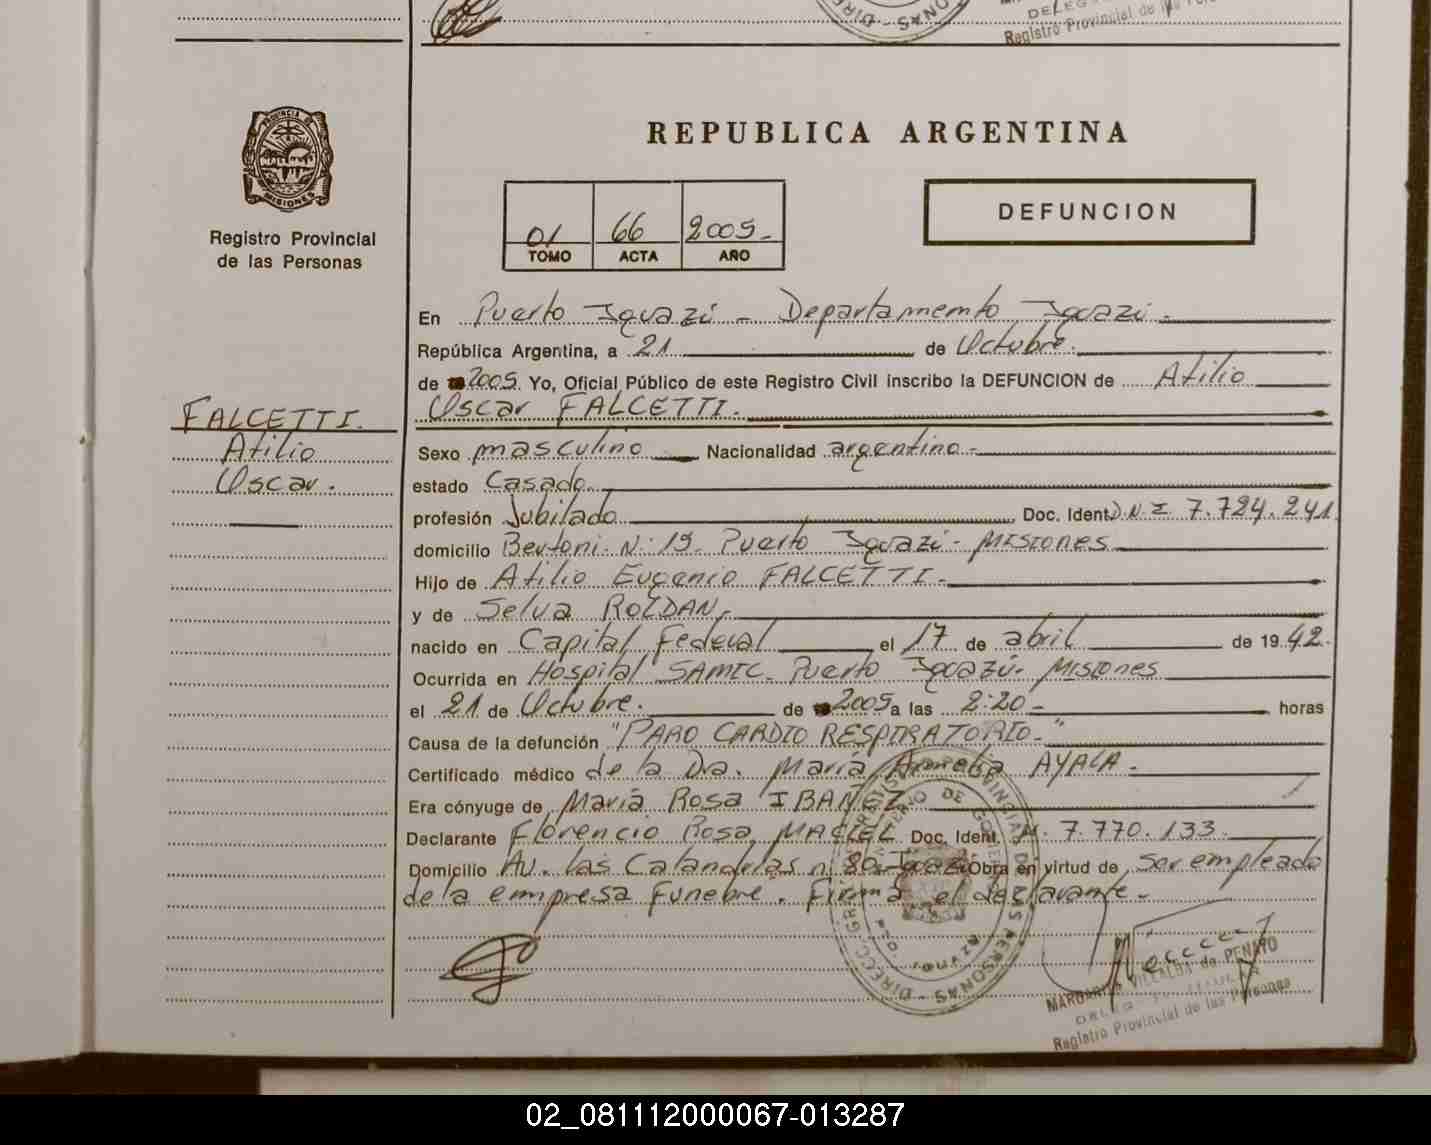 Registro Provincial de las Personas
REPUBLICA ARGENTINA
PROVINCIA DE
MISIONES
Registro Provincial
de las Personas
01 66 2005-
TOMO ACTA AÑO
DEFUNCION
En Puerto Iguazú - Departamento Iguazú -
República Argentina, a 21 de Octubre.
de 2005. Yo, Oficial Público de este Registro Civil inscribo la DEFUNCION de Atilio
Oscar FALCETTI.
FALCETTI.
Atilio
Oscar.
Sexo masculino Nacionalidad argentino-
estado Casado.
profesión Jubilado Doc. Ident. D.N.I 7.724.241
domicilio Bertoni N: 19- Puerto Iguazú- MISIONES
Hijo de Atilio Eugenio FALCETTI-
y de Selva ROLDAN,
nacido en Capital Federal el 17 de abril de 1942-
Ocurrida en Hospital SAMIC- Puerto Iguazú- MISIONES
el 21 de Octubre. de 2005 a las 2:20- horas
Causa de la defunción "PARO CARDIO RESPIRATORIO-"
Certificado médico de la Dra. María Amelia AYALA-
Era cónyuge de María Rosa IBAÑEZ
Declarante Florencio Rosa MACIEL Doc. Ident. N. 7.770.133
Domicilio Av. las Calandrias n: 80-Iguazú Obra en virtud de ser empleado
de la empresa Funebre. Firma el declarante-
MARGARITA VILLALBA de PENAYO
Registro Provincial de las Personas
02_081112000067-013287